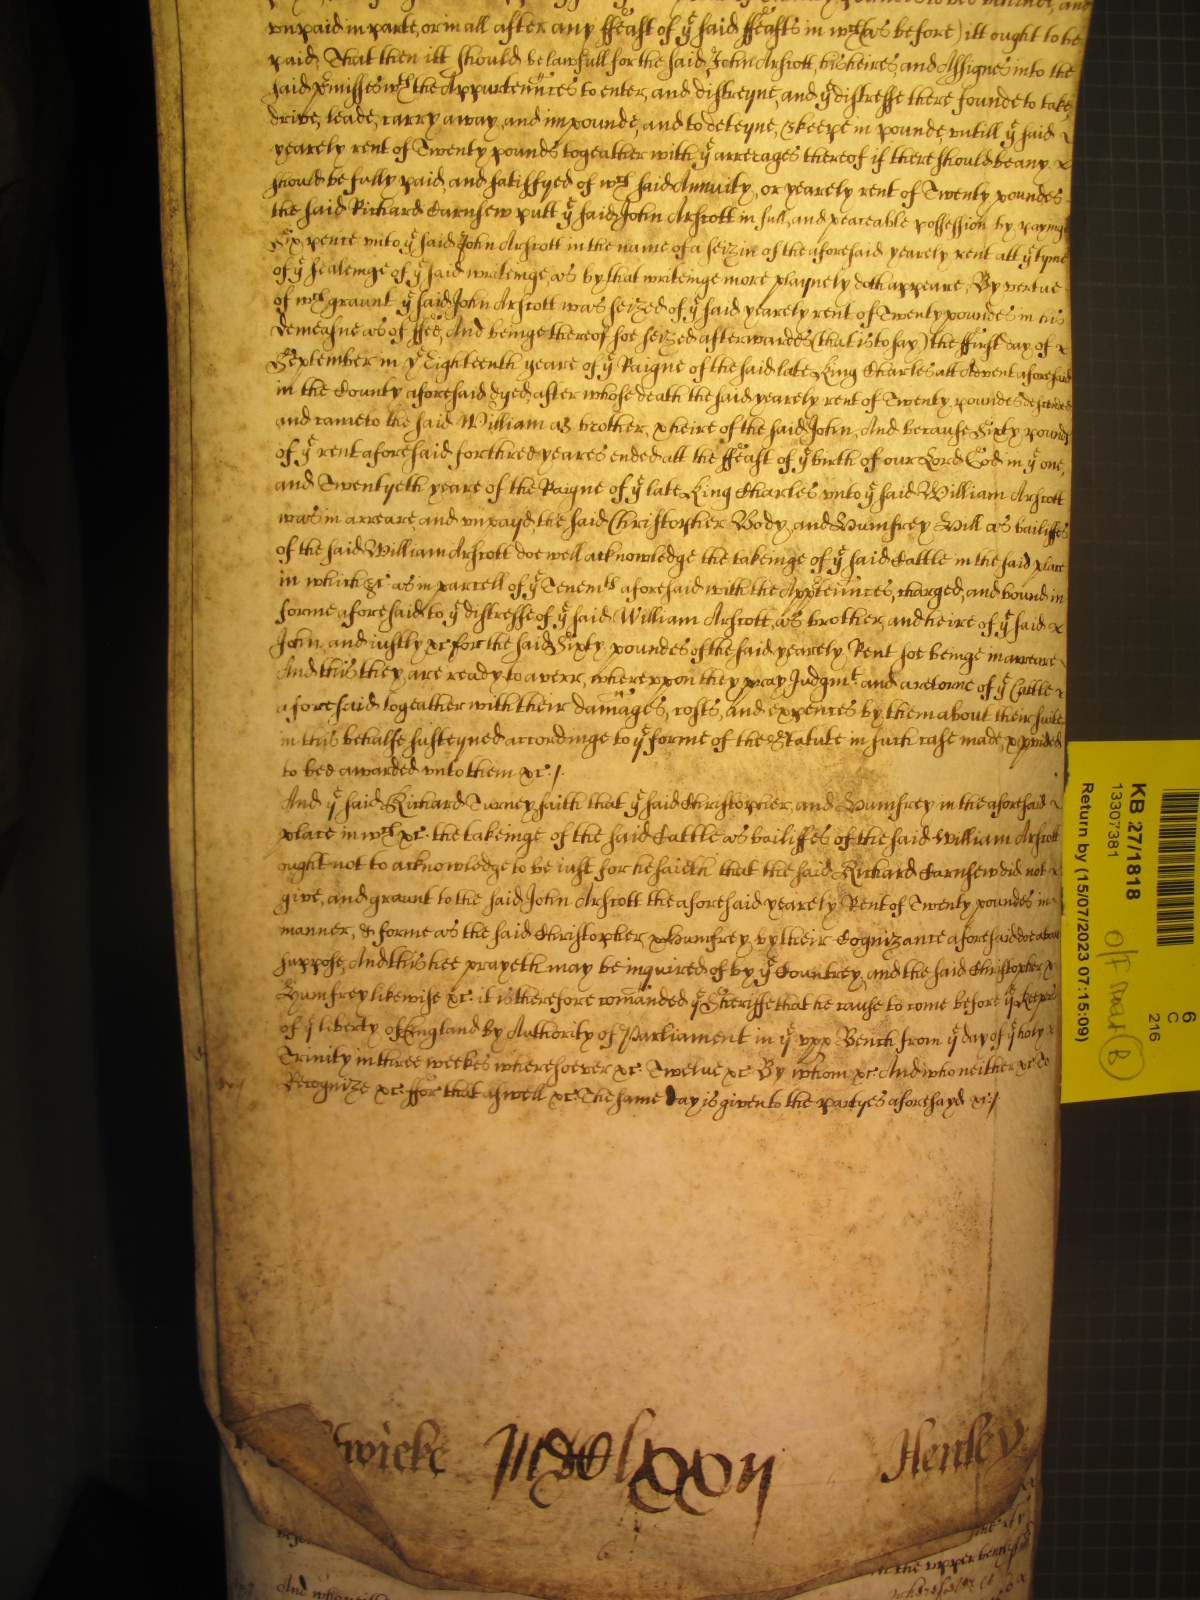 unpaid in parte, or in all after any ffeast of yͤ said ffeasts in wᶜʰ (as before) itt ought to be
paid, That then itt should be lawfull for the said John Arscott, his heires and Assignes into the
said p̱misses wᵗʰ the Appurteñnces to enter, and distreyne, and yͤ distresse there founde to take,
drive, leade, carry away, and impounde, and to deteyne, & keepe in pounde untill yͤ said
yearely rent of Twenty pounds togeather with yͤ arrerages thereof if there should be any
should be fully paid, and satisfyed of wᶜʰ said Annuity, or yearely rent of Twenty poundes
the said Richard Carnsew putt yͤ said John Arscott in full, and peaceable possession by payinge
Sixpence unto yͤ said John Arscott in the name of a seizin of the aforesaid yearely rent att yͤ tyme
of yͤ sealeinge of yͤ said writeinge, as by that writeinge more playnely doth appeare, By vertue
of wᶜʰ graunt yͤ said John Arscott was seized of yͤ said yearely rent of Twenty poundes in his
demeasne as of ffee, And beinge thereof soe seized afterwardes (that is to say) the ffirst day of
September in yͤ Eighteenth yeare of yͤ Raigne of the said late King Charles att Advent aforesaid
in the County aforesaid dyed, after whose death the said yearely rent of Twenty poundes descended
and came to the said William as brother, & heire of the said John, And because Sixty pounds
of yͤ rent aforesaid for three yeares ended att the ffeast of yͤ birth of our Lord God in yͤ one,
and Twentyeth yeare of the Raigne of yͤ late King Charles unto yͤ said William Arscott
was in arreare, and unpayd, the said Christopher Body, and Humfrey Hill as bailiffes
of the said William Arscott doe well acknowledge the takeinge of yͤ said Cattle in the said place
in which &c. as in parcell of yͤ Tenemᵗˢ aforesaid with the Appteñnces, charged, and bound in
forme aforesaid to yͤ distresse of yͤ said William Arscott, as brother, and heire of yͤ said
John, and iustly &c. for the said Sixty poundes of the said yearely Rent soe beinge in arreare
And this they are ready to averr, whereupon they pray Judgmᵗ and a retorne of yͤ Cattle
aforesaid togeather with their damages, costs, and expences by them about their suite
in this behalfe susteyned accordinge to yͤ forme of the Statute in such case made, & p̱vided
to bee awarded unto them &c. /.
And yͤ said Richard Turney saith that yͤ said Christopher, and Humfrey in the aforesaid
place in wᶜʰ &c. the takeinge of the said Cattle as bailiffes of the said William Arscott
ought not to acknowledge to be iust for he saieth that the said Richard Carnsew did not
give, and graunt to the said John Arscott the aforesaid yearely Rent of Twenty poundes in
manner, & forme as the said Christopher, & Humfrey by their Cognizance aforesaid doe above
suppose, And this hee prayeth may be inquired of by yͤ Countrey, and the said Christopher &
Humfrey likewise &c. it is therefore com̃anded yͤ Sheriffe that he cause to come before yͤ Keeprs
of yͤ liberty of England by Authority of Parliament in yͤ upp Bench from yͤ day of yͤ holy
Trinity in three weekes wheresoever &c. Twelve &c. By whom &c. And who neither &c. to
Recognize &c. ffor that aswell &c. The same day is given to the partyes aforesayd &c. /.
wicke
Henley
KB 27/1818
13307381
Return by (15/07/2023 07:15:09)
6
C
216
B